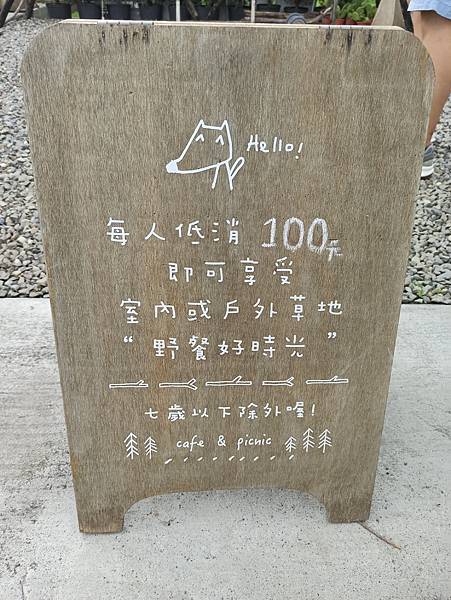 Hello!
每人低消100元
即可享受
室內或戶外草地
“野餐好時光”
七歲以下除外喔!
cafe & picnic